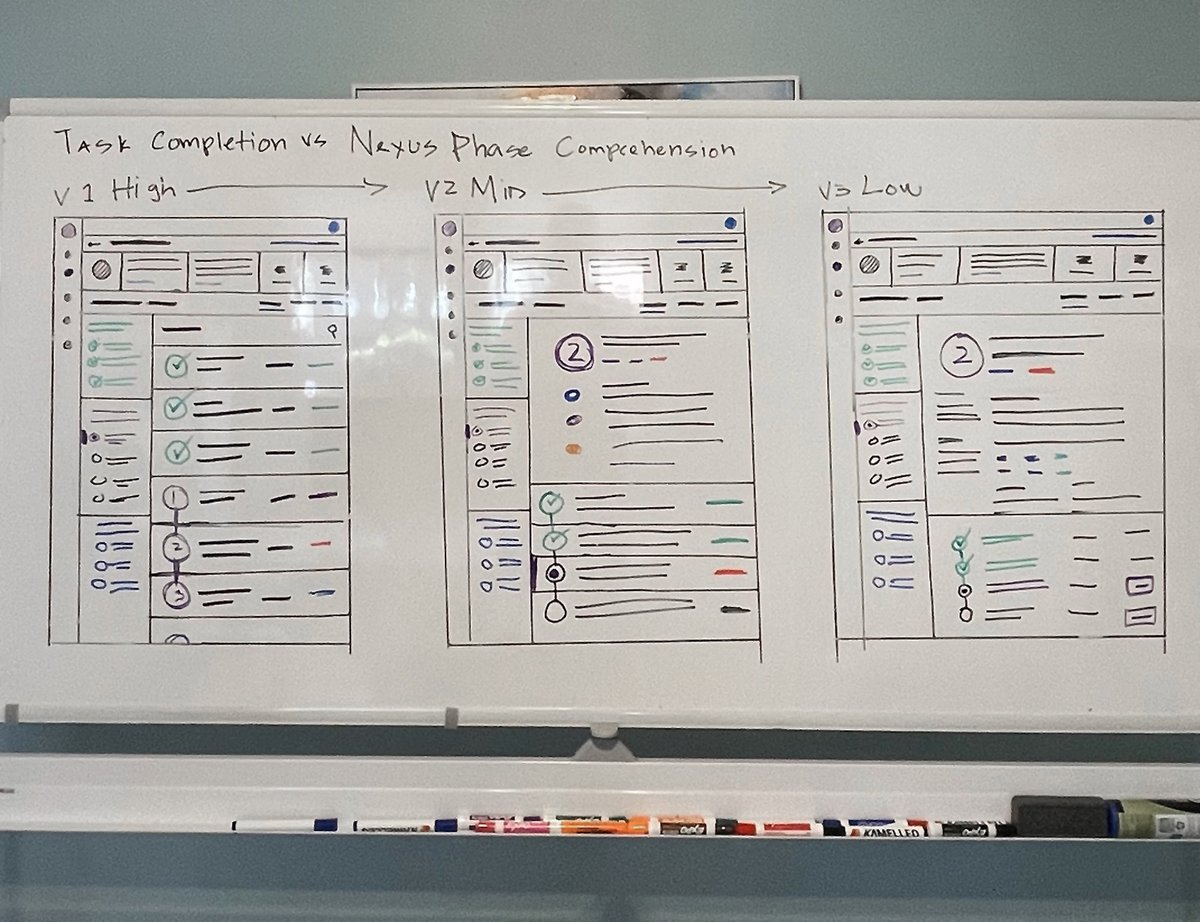 Task Completion vs Nexus Phase Comprehension
V1 High
V2 Mid
V3 Low
2
2
1
2
3
KAMELLED